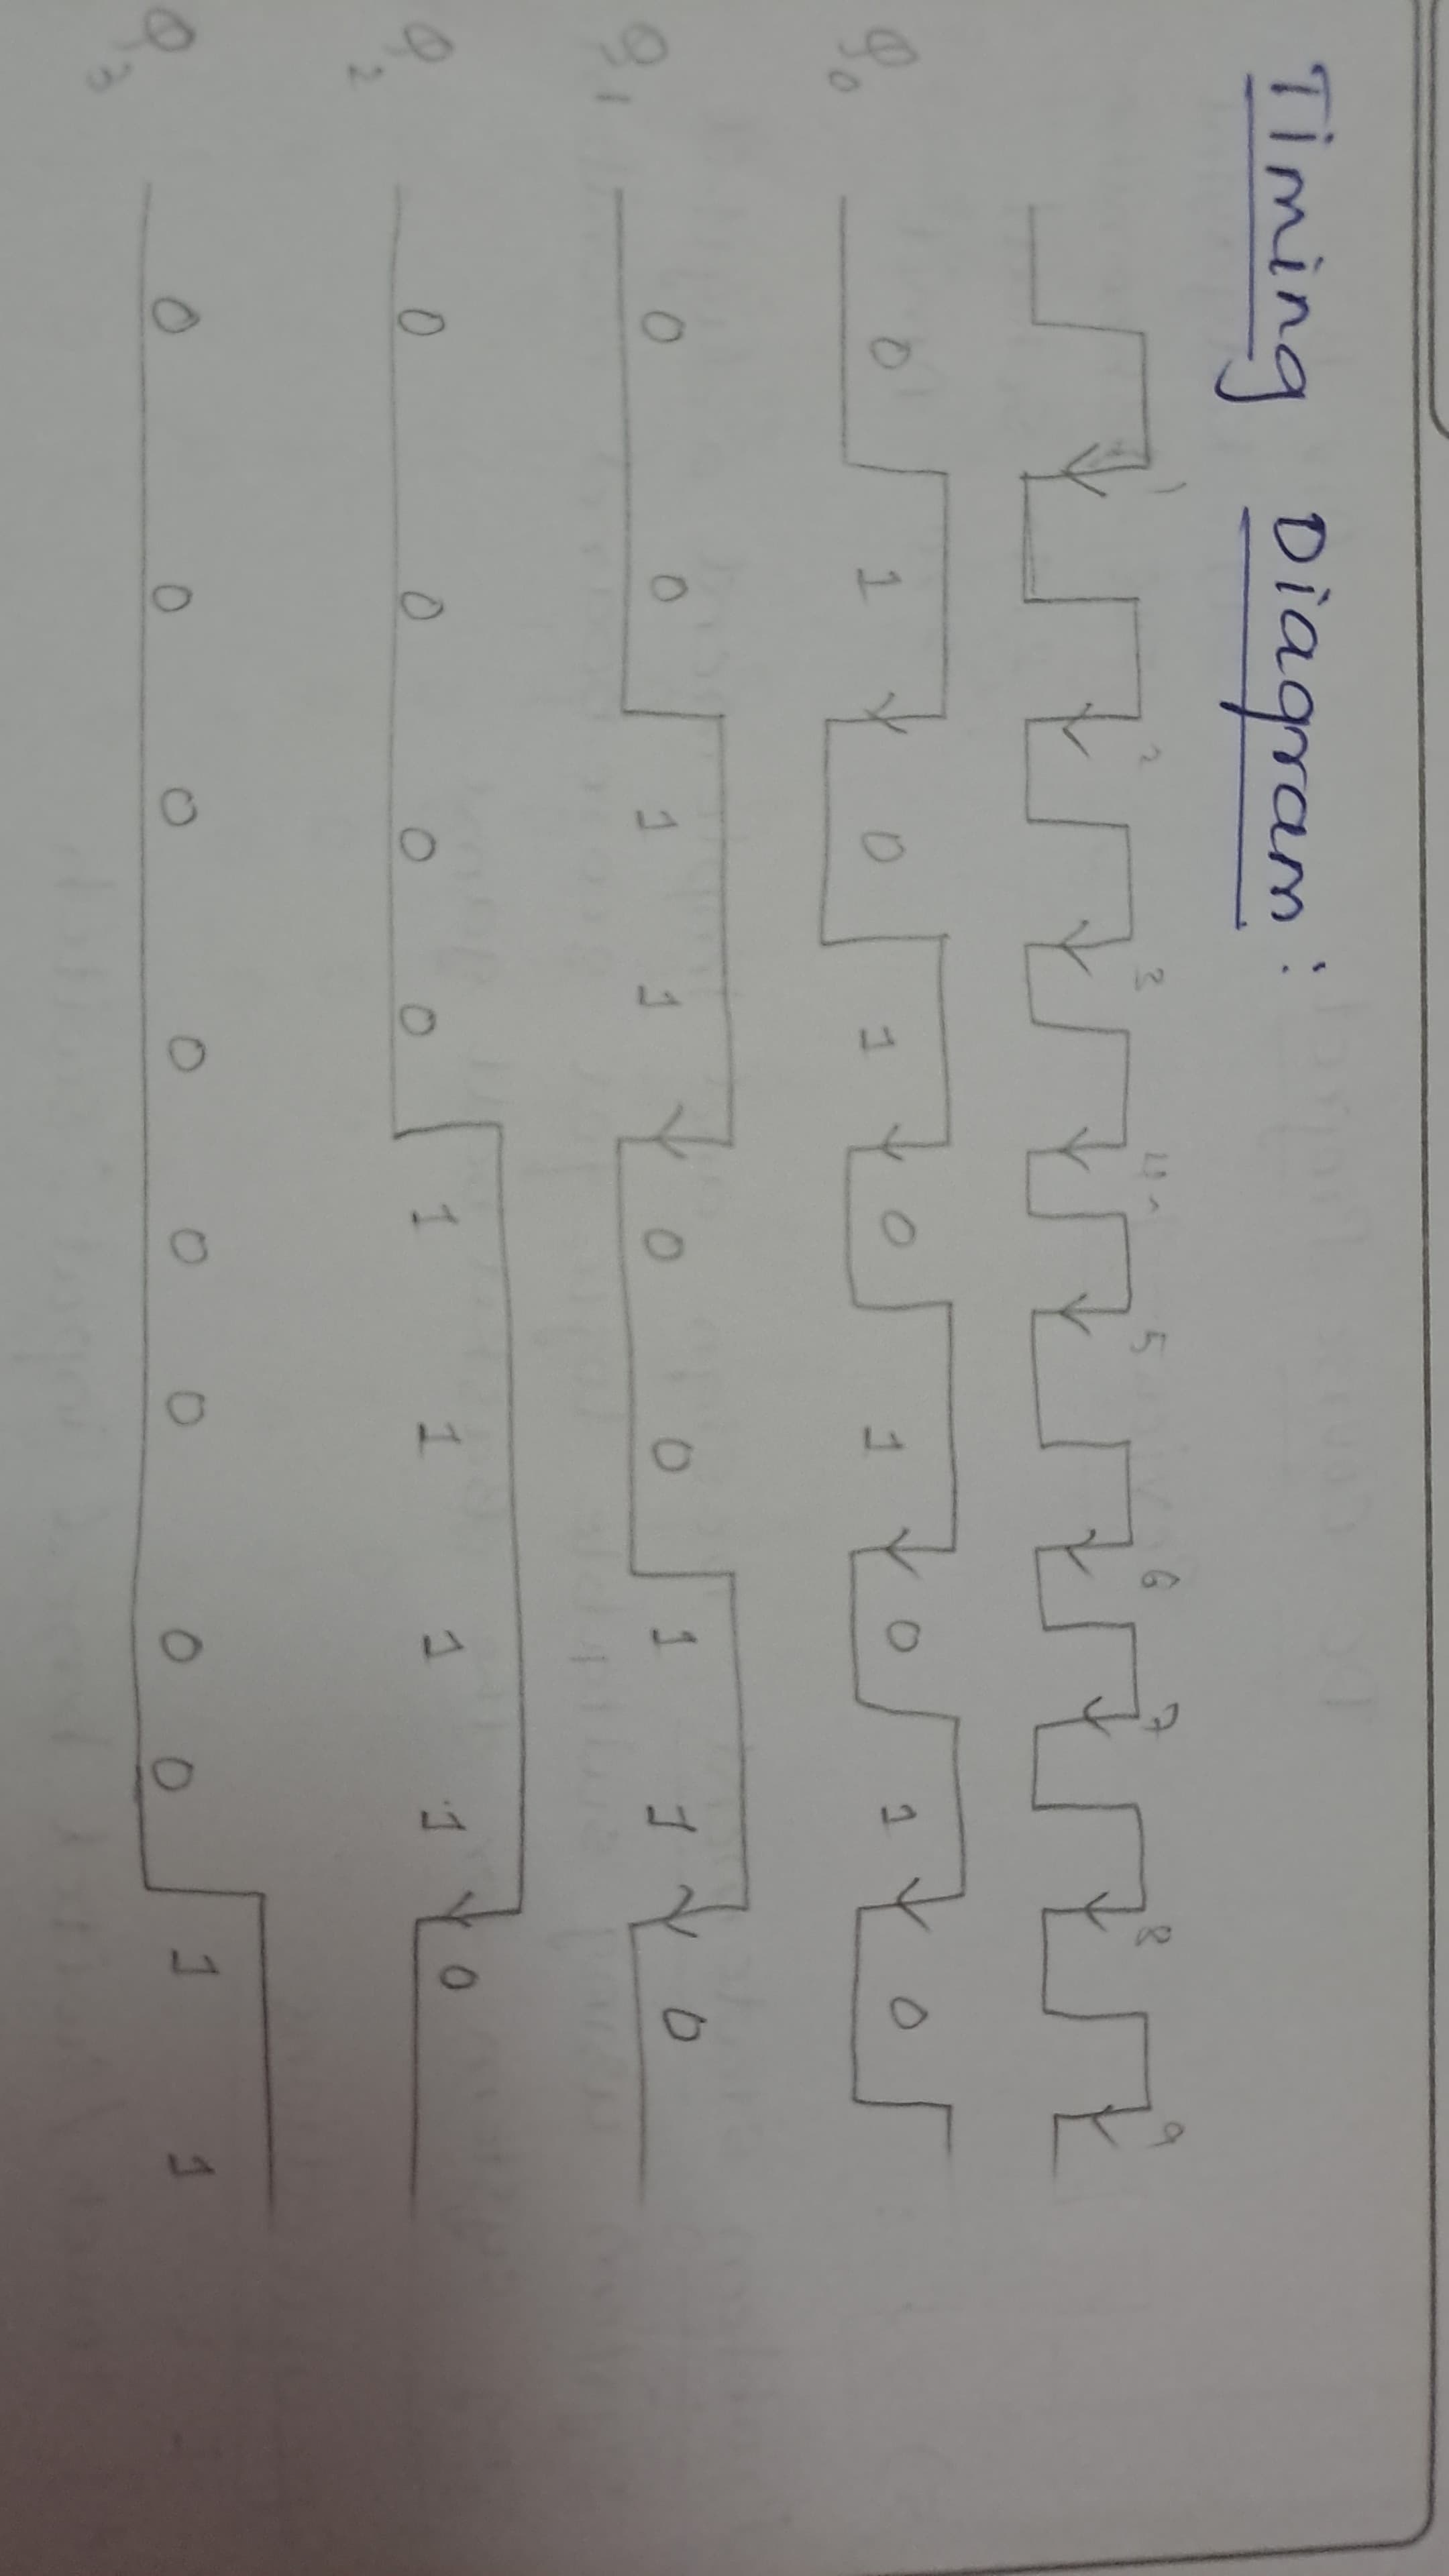 Timing Diagram:
1 2 3 4 5 6 7 8 9
Q0 0 1 0 1 0 1 0 1 0
Q1 0 0 1 1 0 0 1 1 0
Q2 0 0 0 0 1 1 1 1 0
Q3 0 0 0 0 0 0 0 0 1 1